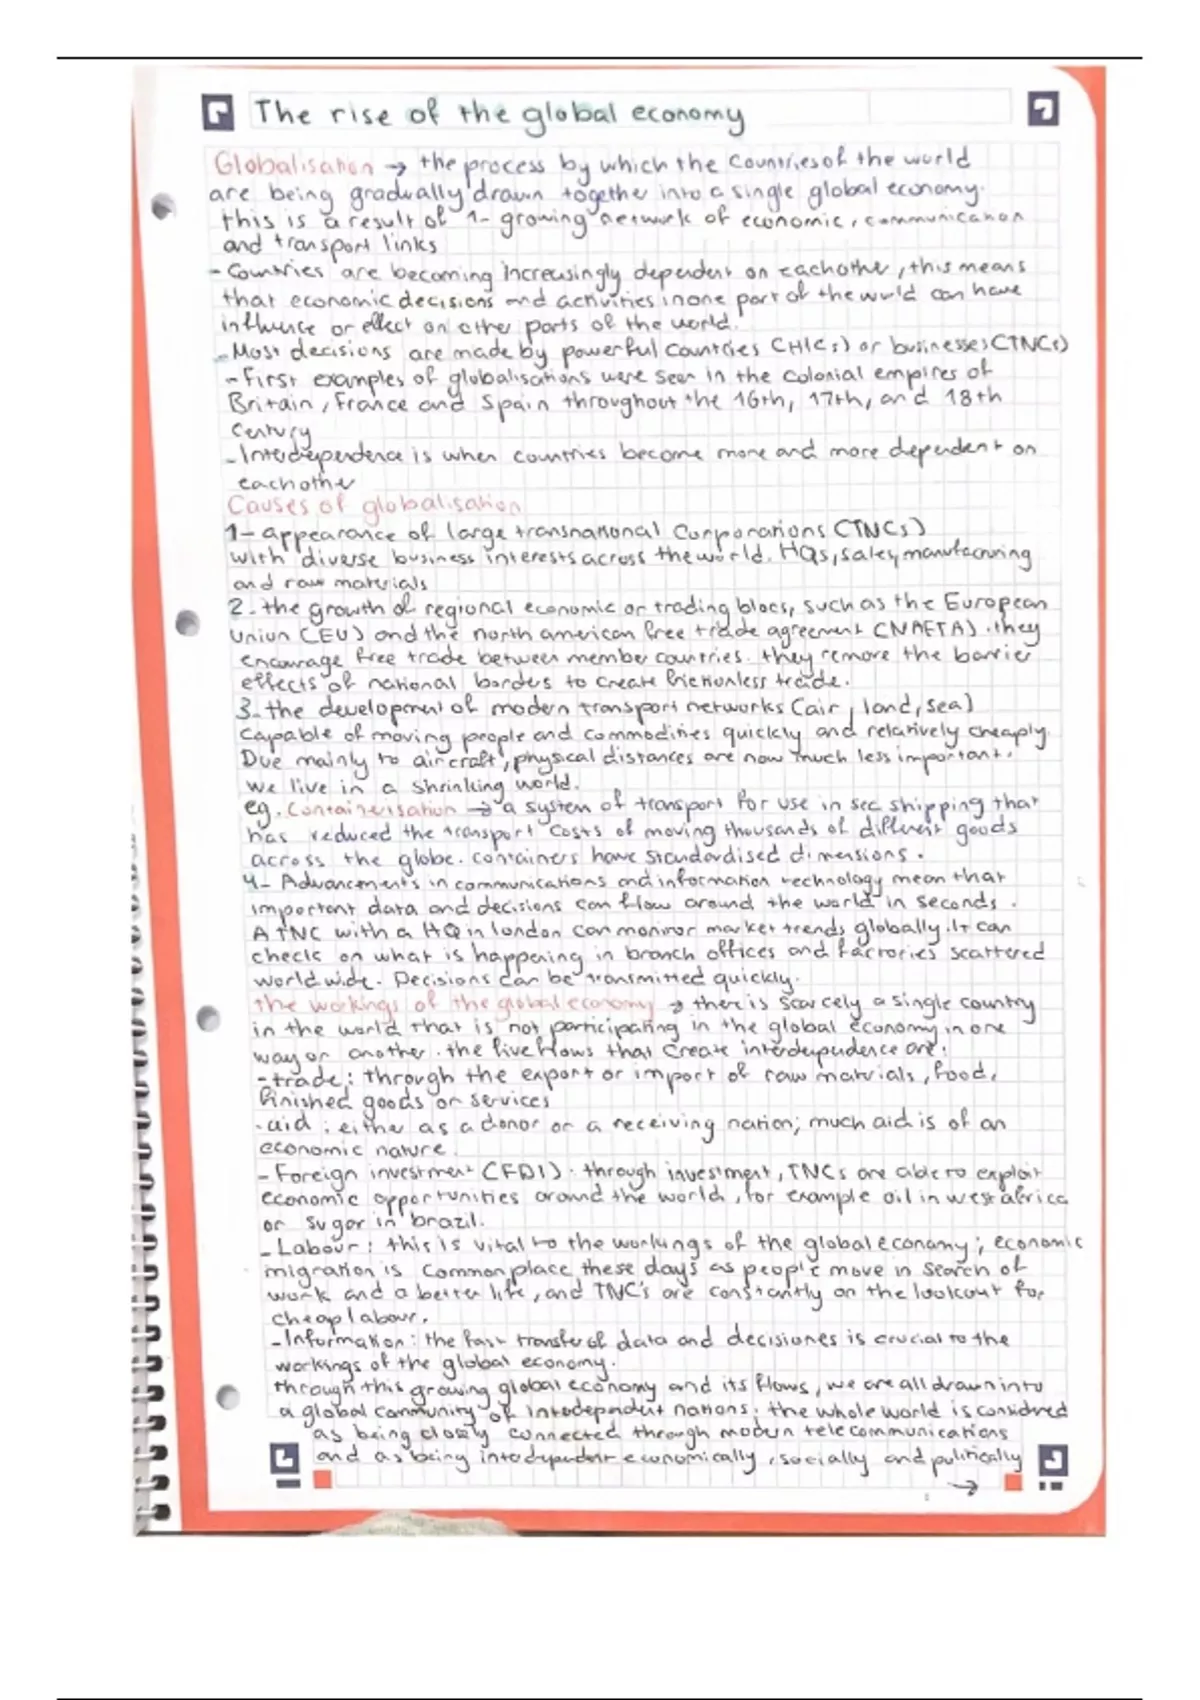 The rise of the global economy
Globalisation → the process by which the countries of the world
are being gradually drawn together into a single global economy.
this is a result of 1- growing network of economic, communication
and transport links
- Countries are becoming increasingly dependent on eachother, this means
that economic decisions and activities in one part of the world can have
influence or effect on other parts of the world.
- Most decisions are made by powerful countries (HICs) or businesses (TNCs)
- First examples of globalisations were seen in the colonial empires of
Britain, France and Spain throughout the 16th, 17th, and 18th
Century
- Interdependence is when countries become more and more dependent on
eachother
Causes of globalisation
1- appearance of large transnational Corporations (TNCs)
with diverse business interests across the world. HQs, sales, manufacturing
and raw materials
2- the growth of regional economic or trading blocs, such as the European
Union (EU) and the north american free trade agreement (NAFTA). they
encourage free trade between member countries. they remove the barrier
effects of national borders to create frictionless trade.
3- the development of modern transport networks (air, land, sea)
Capable of moving people and commodities quickly and relatively cheaply.
Due mainly to aircraft, physical distances are now much less important.
we live in a shrinking world.
eg. Containerisation → a system of transport for use in sea shipping that
has reduced the transport costs of moving thousands of different goods
across the globe. containers have standardised dimensions.
4- Advancements in communications and information technology mean that
important data and decisions can flow around the world in seconds.
A TNC with a HQ in london can monitor market trends globally. It can
check on what is happening in branch offices and factories scattered
worldwide. Decisions can be transmitted quickly.
the workings of the global economy → there is scarcely a single country
in the world that is not participating in the global economy in one
way or another. the five flows that create interdependence are:
- trade: through the export or import of raw materials, food,
finished goods or services
- aid: either as a donor or a receiving nation; much aid is of an
economic nature.
- Foreign investment (FDI): through investment, TNCs are able to exploit
economic opportunities around the world, for example oil in west africa
or sugar in brazil.
- Labour: this is vital to the workings of the global economy; economic
migration is commonplace these days as people move in search of
work and a better life, and TNC's are constantly on the lookout for
cheap labour.
- Information: the fast transfer of data and decisiones is crucial to the
workings of the global economy.
through this growing global economy and its flows, we are all drawn into
a global community of interdependent nations. the whole world is considered
as being closely connected through modern telecommunications
and as being interdependent economically, socially and politically
→